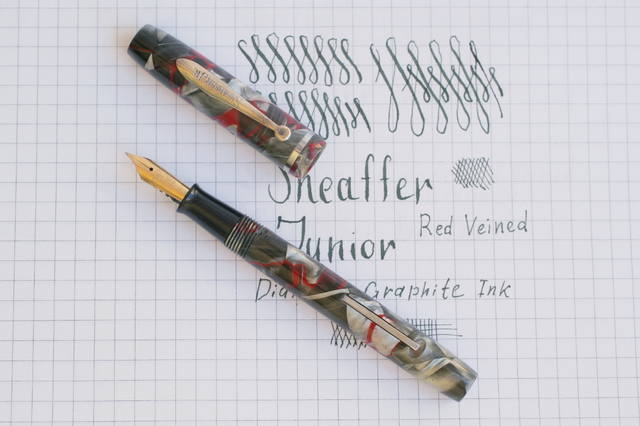 Sheaffer
Junior
Red Veined
Graphite Ink